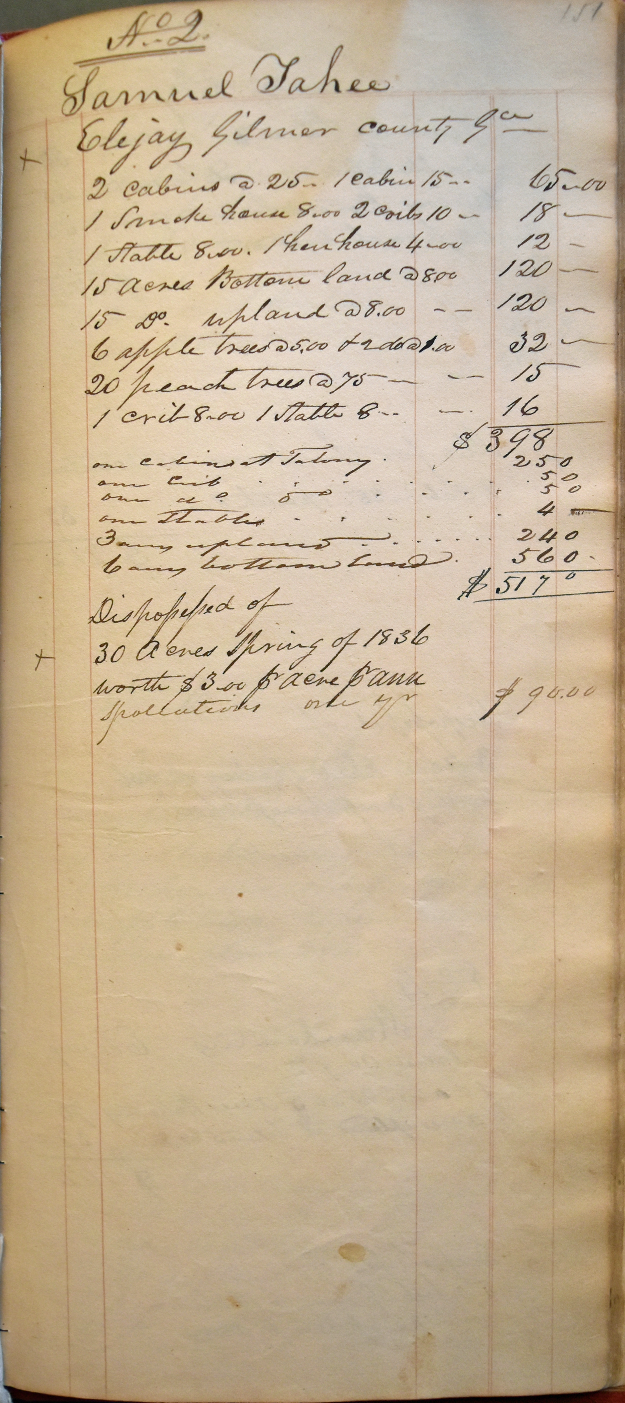 151
No 2.
Samuel Tahee
Elejay Gilmer county Ga
2 cabins @ 25-- 1 cabin 15-- 65.00
1 Smoke house 8.00 2 cribs 10 -- 18 --
1 Stable 8.00. 1 hen house 4.00 12 -
15 Acres Bottom land @ 8.00 120 --
15 Do. upland @ 8.00 -- 120 --
6 apple trees @ 5.00 & 2 do @ 1.00 32 --
20 peach trees @ 75 -- -- 15
1 crib 8.00 1 Stable 8-- -- 16
$398
one cabin at 250
one crib 50
one do 50
one Stables 4
3 upland 240
6 bottom land 560
$5170
Dispossessed of
30 Acres Spring of 1836
worth $3.00 pr acre pr ann
Spoliations one yr $90.00